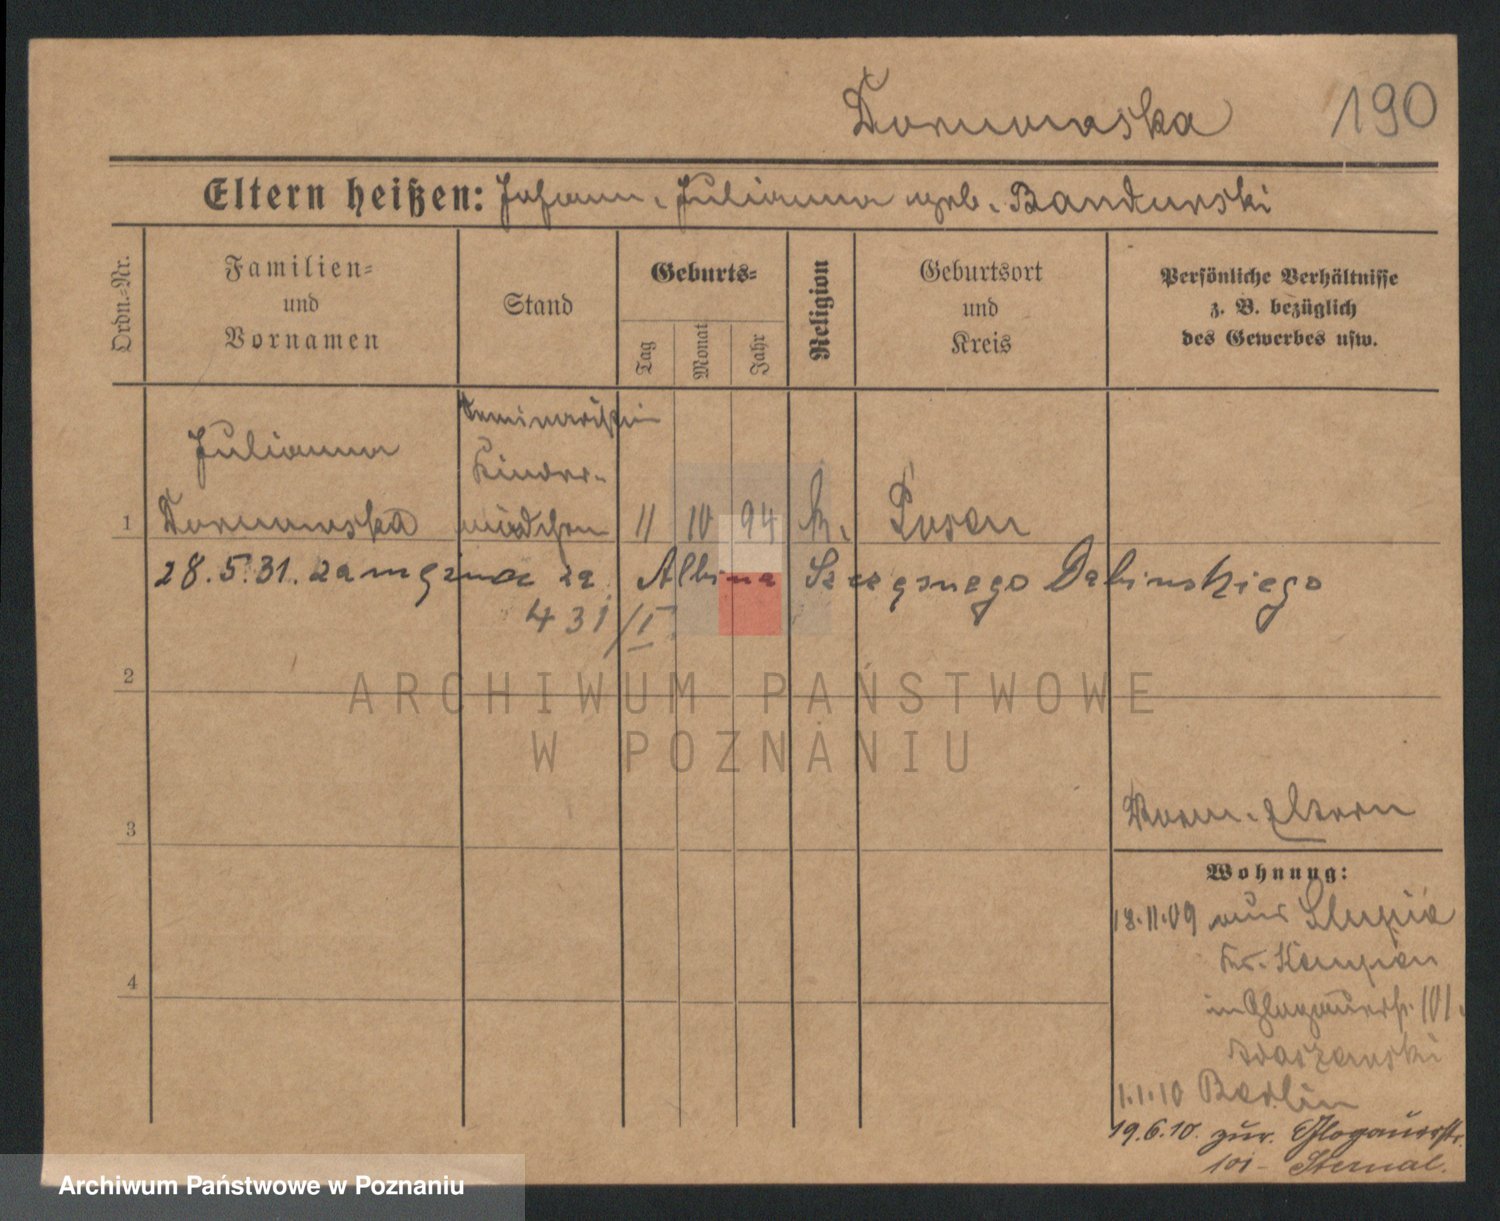 Dornowska 190
Eltern heißen: Johann, Julianna geb. Bandurski
Ordn.-Nr.
Familien-
und
Vornamen
Stand
Geburts-
Tag
Monat
Jahr
Religion
Geburtsort
und
Kreis
Persönliche Verhältnisse
z. B. bezüglich
des Gewerbes usw.
Seminaristin
Julianna Kinder-
1 Dornowska mädchen 11 10 94 k. Posen
28.5.31. zamężna za Albina Szczęsnego Dabinskiego
431/I
2
ARCHIWUM PAŃSTWOWE
W POZNANIU
3
Vorm. Eltern
Wohnung:
18.11.09 aus Slupia
Kr. Kempen
4
in Glogauerstr. 101.
Adaszewski
1.1.10 Berlin
19.6.10. zur. Glogauerstr.
101 - Sternal.
Archiwum Państwowe w Poznaniu